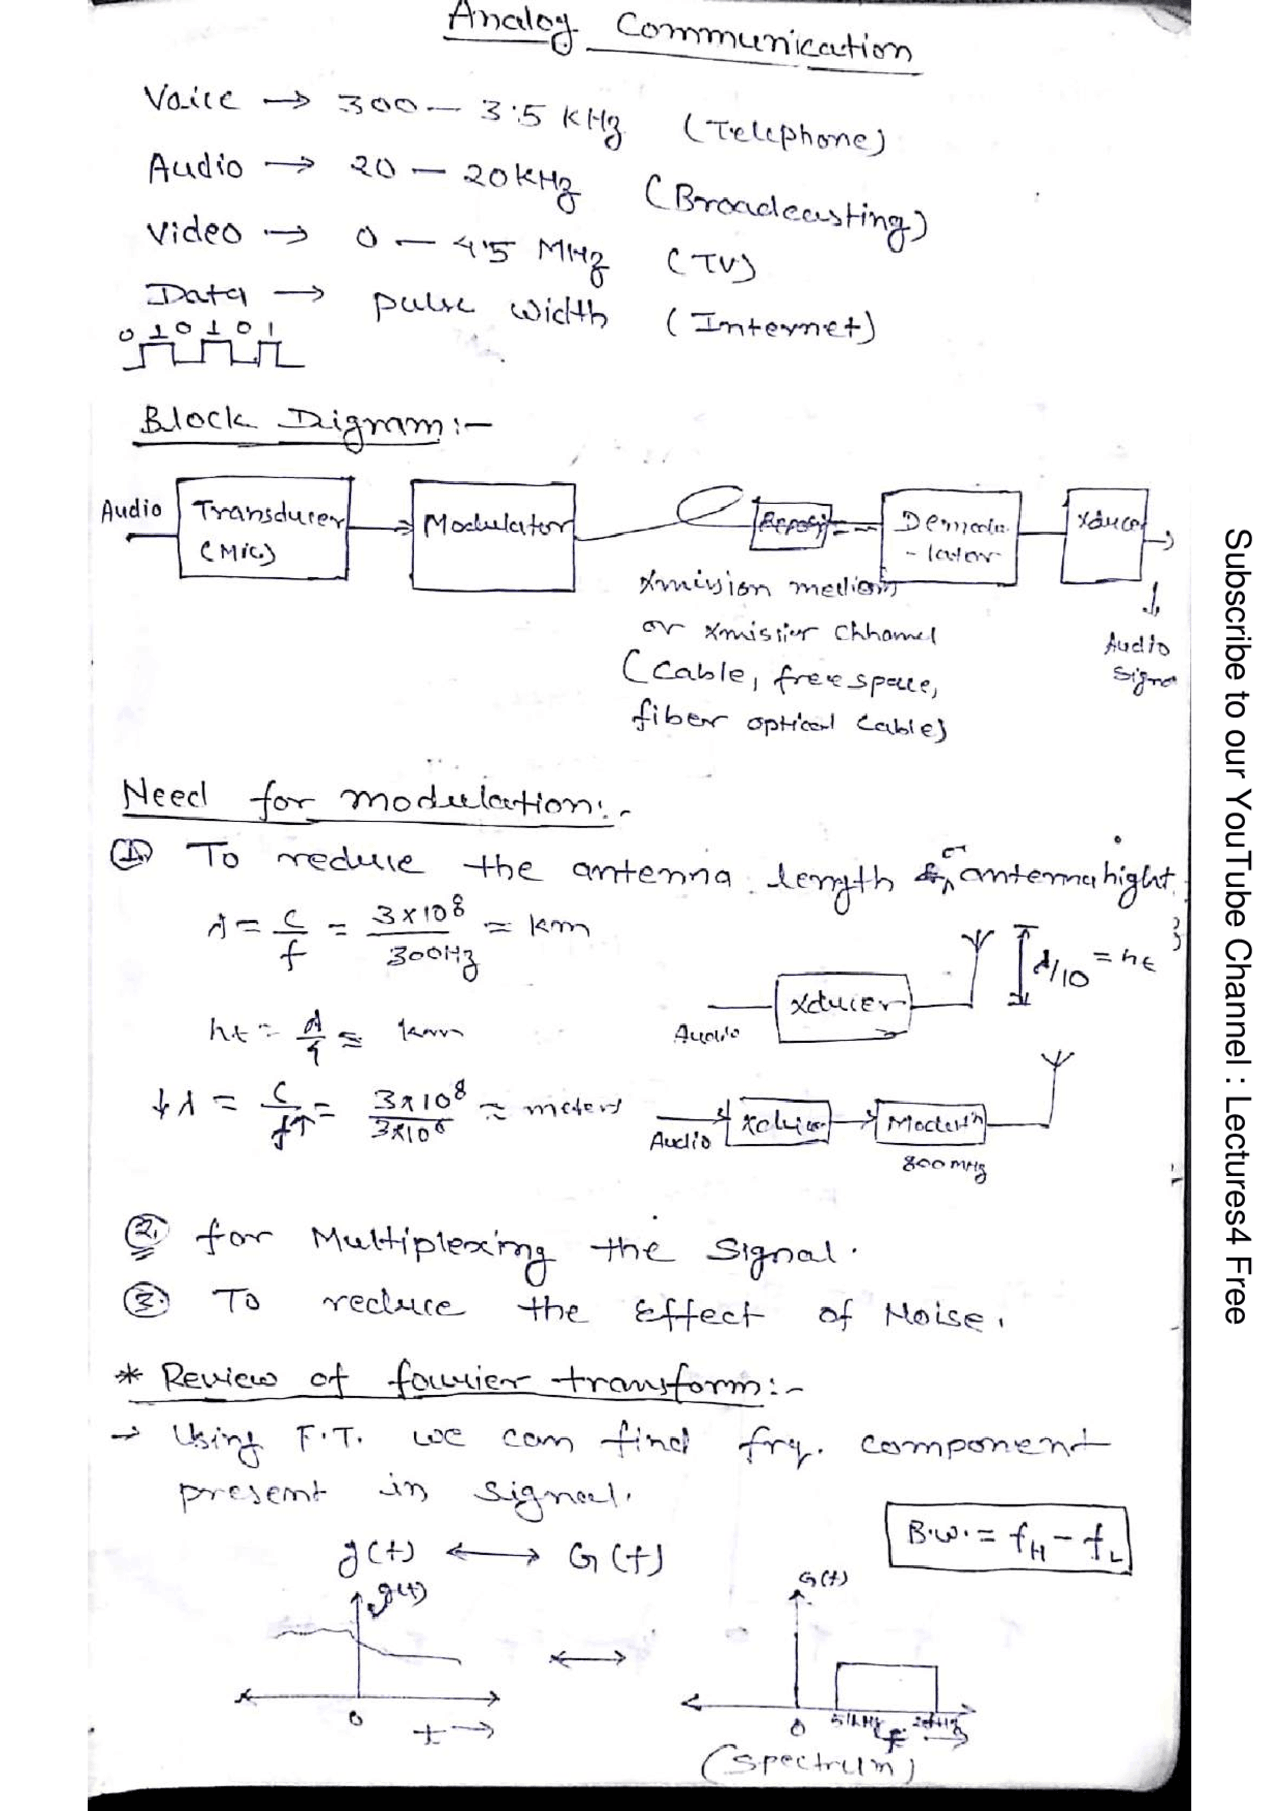 Analog Communication
Voice → 300 — 3.5 KHz (Telephone)
Audio → 20 — 20KHz (Broadcasting)
Video → 0 — 4.5 MHz (TV)
Data → pulse width (Internet)
0 1 0 1 0 1
Block Digram:-
Audio
Transducer
(Mic)
Modulator
Demodu
-lator
Xducer
Xmission medium
or xmission Chhannel
(Cable, free space,
fiber optical cable)
Audio
Signal
Need for modulation:-
1. To reduce the antenna length or antenna hight.
λ = c/f = 3×10⁸/300Hz ≈ km
Xducer
Audio
λ/10 = ht
ht = λ/4 ≈ km
↓λ = c/f↑ = 3×10⁸/3×10⁶ ≈ meters
Audio
Xducer
Modultn
800 MHz
2. for Multiplexing the signal.
3. To reduce the Effect of Noise.
* Review of fourier transform:-
→ Using F.T. we can find frq. component
present in signal.
B.W. = fH - fL
g(t) ↔ G(f)
g(t)
G(f)
0
t →
0 5kHz 20kHz
f →
(Spectrum)
Subscribe to our YouTube Channel : Lectures4 Free